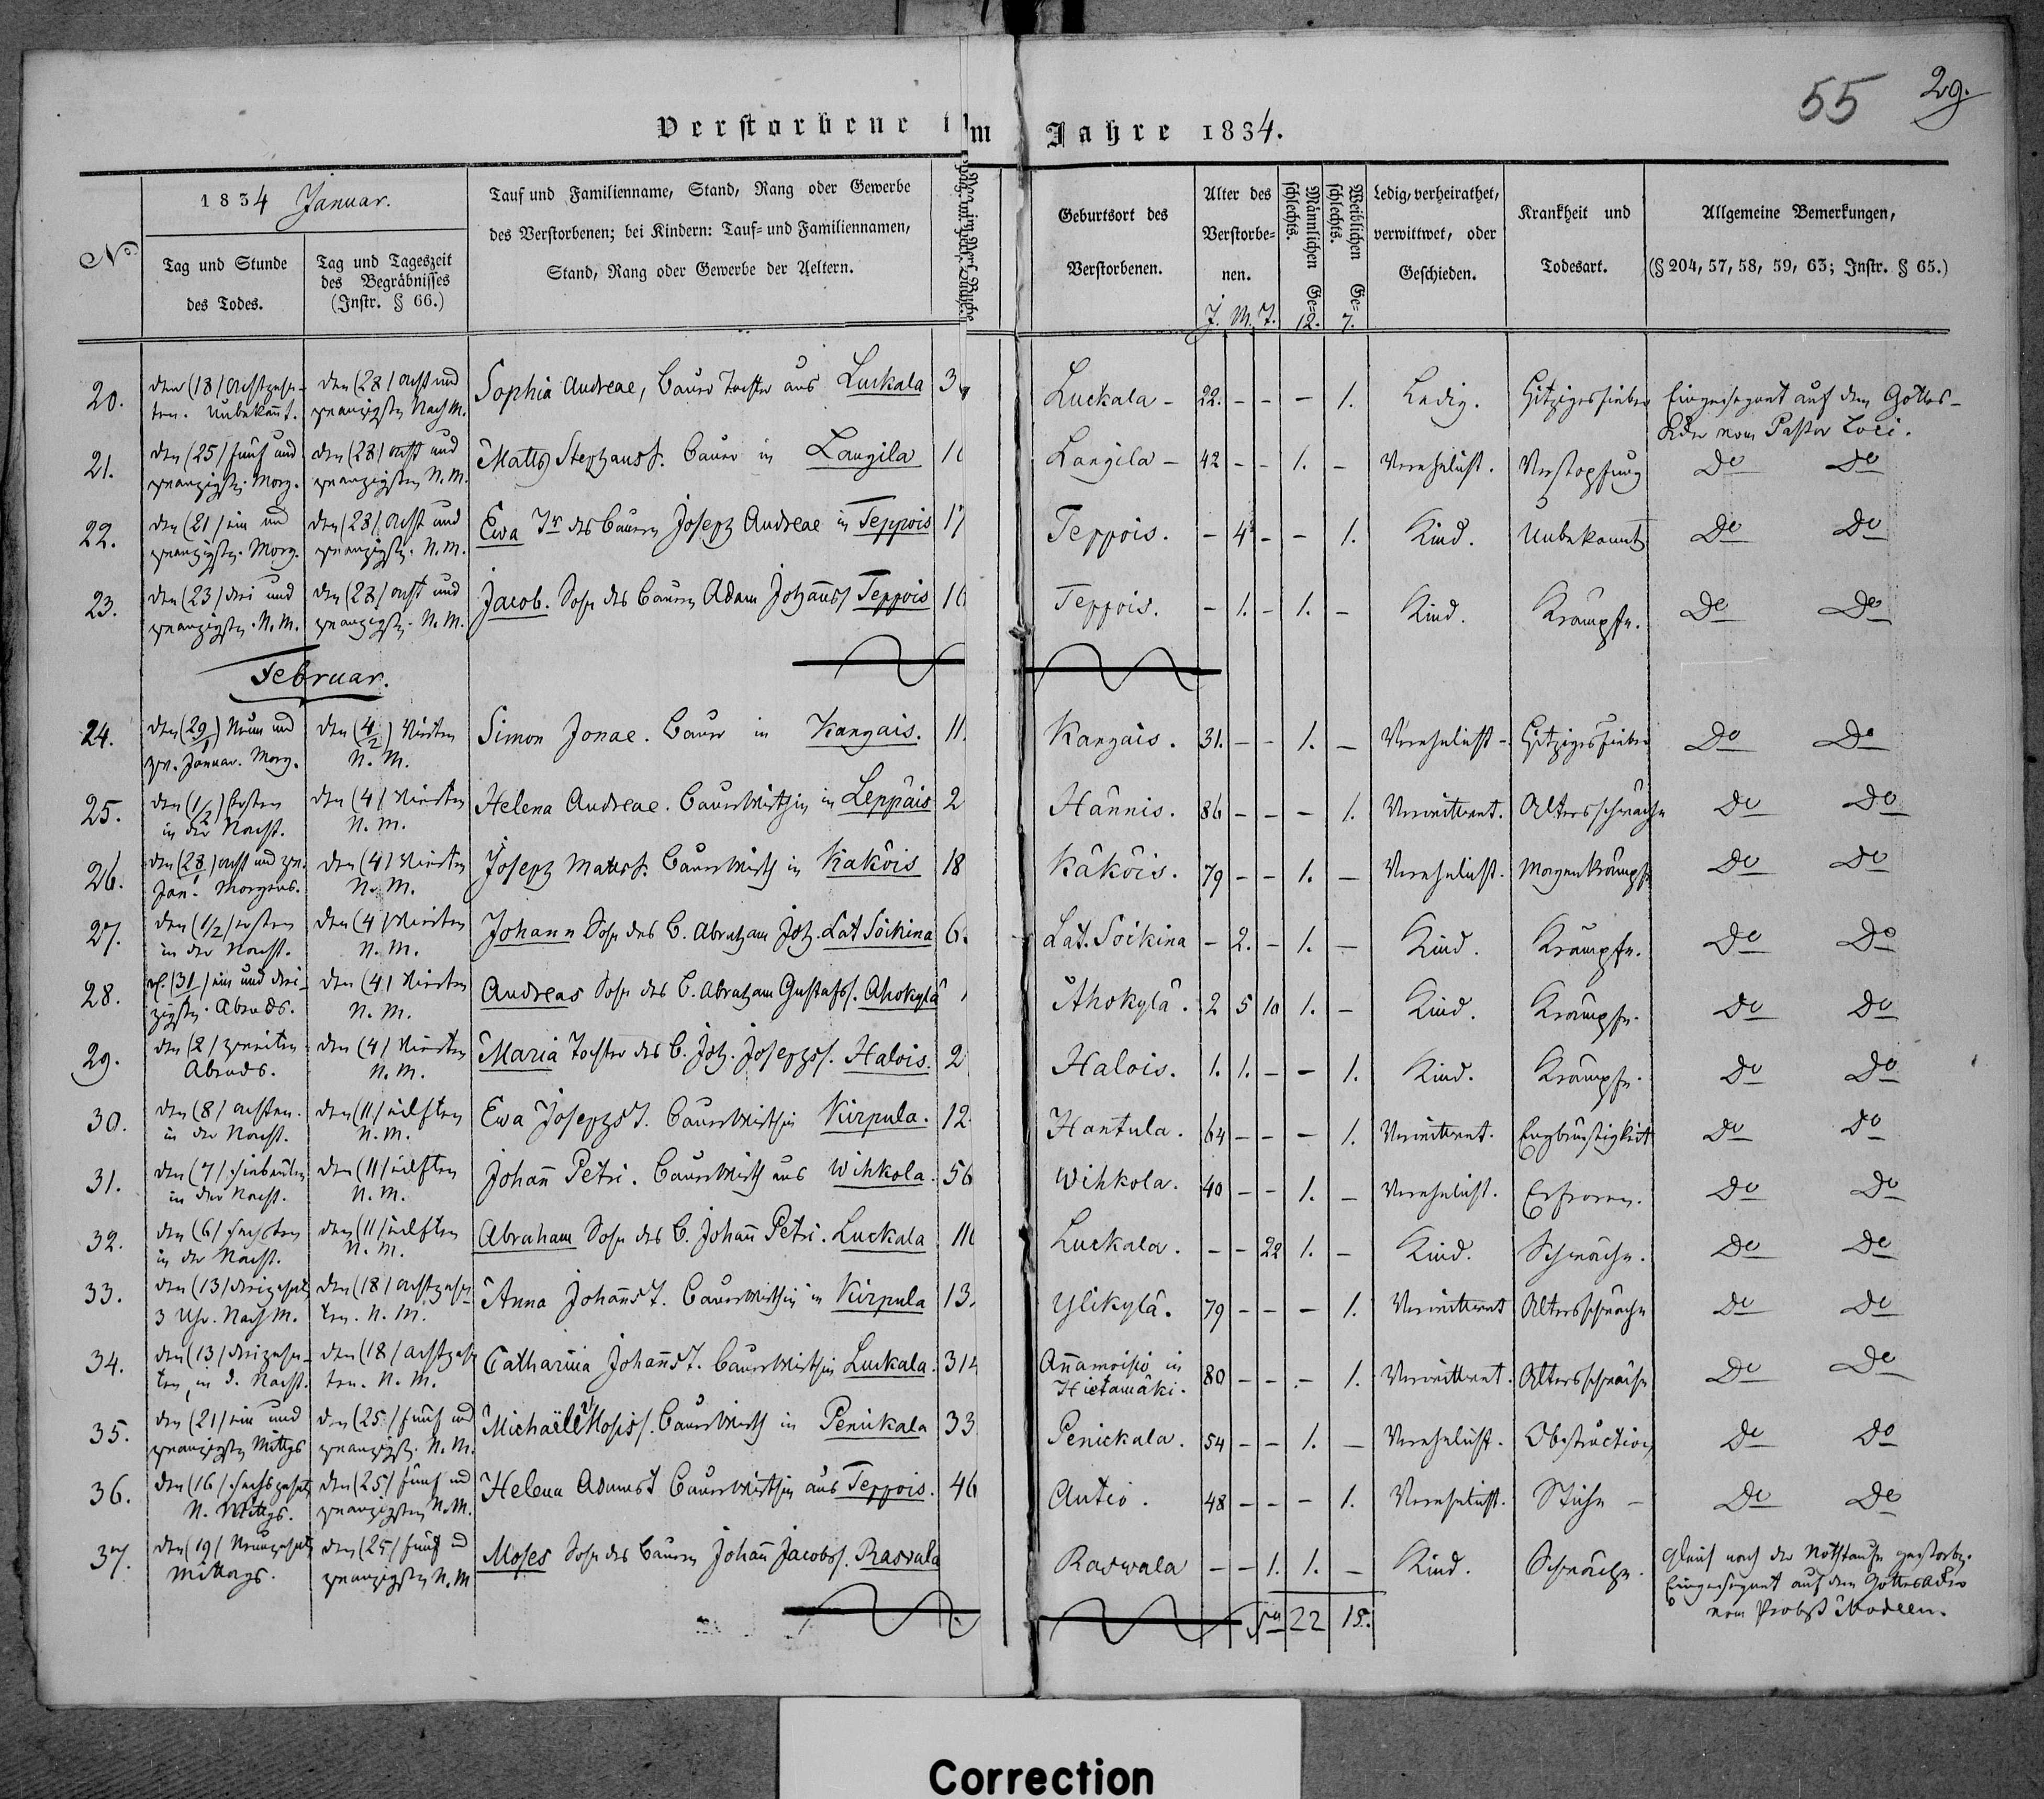 55 29.
Verstorbene im Jahre 1834.
No
1834 Januar.
Tag und Stunde
des Todes.
Tag und Tageszeit
des Begräbnisses
(Instr. § 66.)
Tauf und Familienname, Stand, Rang oder Gewerbe
des Verstorbenen; bei Kindern: Tauf- und Familiennamen,
Stand, Rang oder Gewerbe der Aeltern.
Geburtsort des
Verstorbenen.
Alter des
Verstorbe-
nen.
J. M. T.
Männlichen Ge-
schlechts.
12.
Weiblichen Ge-
schlechts.
7.
Ledig, verheirathet,
verwittwet, oder
Geschieden.
Krankheit und
Todesart.
Allgemeine Bemerkungen,
(§ 204, 57, 58, 59, 63; Instr. § 65.)
20. den (18) achtzehn- den (28) acht und Sophia Andreae, Bauer Tochter aus Luckala 3 Luckala - 22. - - - 1. Ledig. Hitzigesfieber Eingesegnet auf dem Gottes-
ten. Unbekannt. zwanzigsten Nach M. Acker vom Pastor Loci.
21. den (25) fünf und den (28) acht und Matts Stephanss. Bauer in Langila 1 Langila - 42 - - 1. - Verehelicht. Verstopfung Do Do
zwanzigsten Morg. zwanzigsten N. M.
22. den (21) ein und den (28) acht und Ewa Tr des Bauern Joseph Andreae in Teppois 17 Teppois. - 4 - - 1. Kind. Unbekannt Do Do
zwanzigsten Morg. zwanzigsten N. M.
23. den (23) drei und den (28) acht und Jacob. Sohn des Bauern Adam Johanns Teppois 1 Teppois. - 1. - 1. - Kind. Krämpfe. Do Do
zwanzigsten N. M. zwanzigsten N. M.
Februar.
24. den (29/1) Neun und den (4/2) Vierten Simon Jonae. Bauer in Kangais. 11. Kangais. 31. - - 1. - Verehelicht - Hitzigesfieber Do Do
zw. Januar. Morg. N. M.
25. den (1/2) Ersten den (4) Vierten Helena Andreae. Bauer Wirthin in Leppäis 2 Hännis. 86 - - - 1. Verwittwet. Altersschwäche Do Do
in der Nacht. N. M.
26. den (28/1) acht und zw. den (4) Vierten Joseph Matss. Bauer Wirth in Kaköis 18 Käköis. 79 - - 1. - Verehelicht. Magenkrämpfe Do Do
Jan. Morgens. N. M.
27. den (1/2) ersten den (4) Vierten Johann Sohn des B. Abraham Joh. Lat Soikina 6 Lat. Soikina - 2. - 1. - Kind. Krämpfe. Do Do
in der Nacht. N. M.
28. (31) ein und drei- den (4) Vierten Andreas Sohn des B. Abraham Gustafss. Ahokylä Ahokylä. 2 5 10 1. - Kind. Krämpfe. Do Do
zigsten Abends. N. M.
29. den (2) zweiten den (4) Vierten Maria Tochter des B. Joh. Josephss. Halois. 2 Halois. 1. 1. - - 1. Kind. Krämpfe. Do Do
Abends. N. M.
30. den (8) achten den (11) eilften Ewa Josephs T. Bauer Wirthin Kirpula. 12. Hantula. 64 - - - 1. Verwittwet. Engbrüstigkeit Do Do
in der Nacht. N. M.
31. den (7) siebenten den (11) eilften Johann Petri. Bauer Wirth aus Wihkola. 56 Wihkola. 40 - - 1. - Verehelicht. Erfroren. Do Do
in der Nacht. N. M.
32. den (6) sechsten den (11) eilften Abraham Sohn des B. Johann Petri. Luckala 11 Luckala. - - 22 1. - Kind. Schwäche. Do Do
in der Nacht. N. M.
33. den (13) dreizehnt. den (18) achtzehn- Anna Johanns T. Bauer Wirthin in Kirpula 13. Ylikylä. 79 - - - 1. Verwittwet Altersschwäche Do Do
3 Uhr. Nach M. ten. N. M.
34. den (13) dreizehn- den (18) achtzehn- Catharina Johanns T. Bauer Wirthin Luckala. 31 Annamoisio in 80 - - - 1. Verwittwet. Altersschwäche Do Do
ten, in d. Nacht. ten. N. M. Hietamäki.
35. den (21) ein und den (25) fünf und Michaël Mosiss. Bauer Wirth in Penickala 33 Penickala. 54 - - 1. - Verehelicht. Obstruction Do Do
zwanzigsten Mittgs zwanzigst. N. M.
36. den (16) sechszehnt. den (25) fünf und Helena Adams T Bauer Wirthin aus Teppois. 46 Autio. 48 - - - 1. Verehelicht. Stiche - Do Do
N. Mittgs. zwanzigsten N. M.
37. den (19) Neunzehnt. den (25) fünf und Moses Sohn des Bauern Johann Jacobss. Raswala Raswala - - 1. 1. - Kind. Schwäche. Gleich nach der Nothtaufe gestorben.
Mittags. zwanzigsten N. M Eingesegnet auf dem Gottesacker
Sa 22 15. vom Probst
Correction